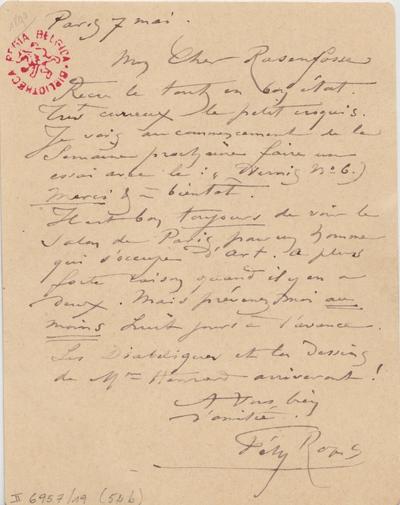 1890
Paris 7 mai.
BIBLIOTHECA REGIA BELGICA
Mon Cher Rassenfosse
Reçu le tout en bon état.
Très curieux le petit croquis.
Je vais au commencement de la
Semaine prochaine faire un
essai avec le : (Vernis No 6.)
Merci & à bientôt.
Il est bon toujours de voir le
Salon de Paris pour un homme
qui s'occupe d'Art. à plus
forte raison quand il y en a
deux. Mais prévenez moi au
moins huit jours à l'avance.
Les Diaboliques et les Dessins
de Mme arriveront !
A Vous bien
d'amitié.
Fély Rops
II 6957/19 (54b)